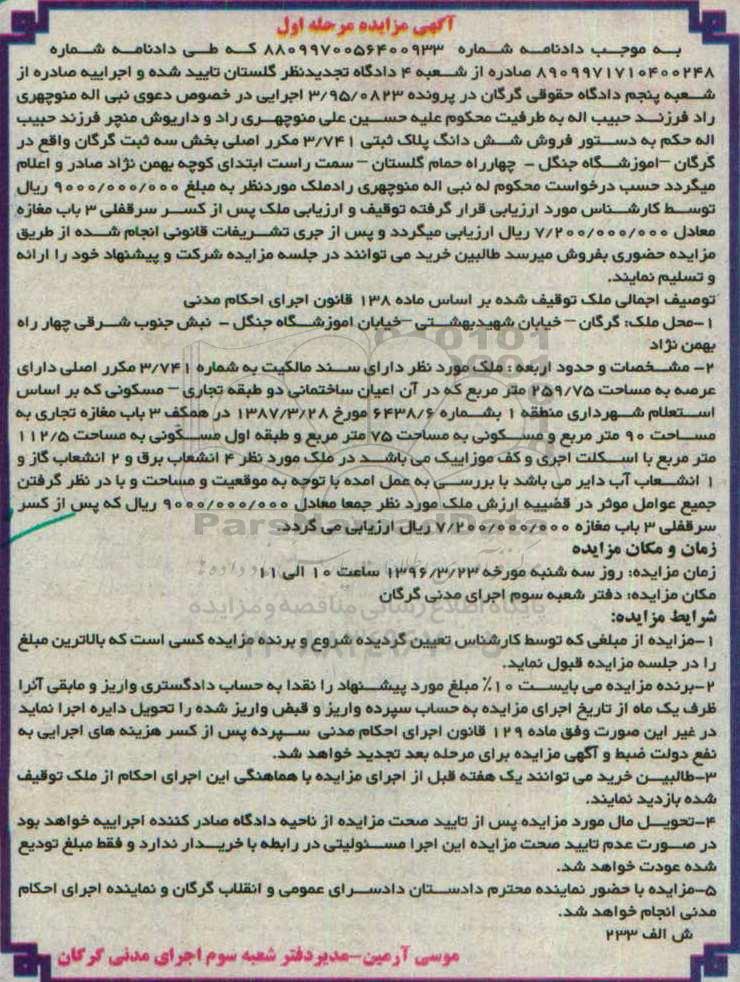 آگهی مزایده مرحله اول
به موجب دادنامه شماره ۸۸۰۹۹۷۰۰۵۶۴۰۰۹۳۳ که طی دادنامه شماره
۸۹۰۹۹۷۱۷۱۰۴۰۰۲۴۸ صادره از شعبه ۴ دادگاه تجدیدنظر گلستان تایید شده و اجراییه صادره از
شعبه پنجم دادگاه حقوقی گرگان در پرونده ۳/۹۵/۰۸۲۳ اجرایی در خصوص دعوی نبی اله منوچهری
راد فرزند حبیب اله به طرفیت محکوم علیه حسین علی منوچهری راد و داریوش منچر فرزند حبیب
اله حکم به دستور فروش شش دانگ پلاک ثبتی ۳/۷۴۱ مکرر اصلی بخش سه ثبت گرگان واقع در
گرگان –اموزشگاه جنگل – چهارراه حمام گلستان – سمت راست ابتدای کوچه بهمن نژاد صادر و اعلام
میگردد حسب درخواست محکوم له نبی اله منوچهری رادملک موردنظر به مبلغ ۹۰۰۰/۰۰۰/۰۰۰ ریال
توسط کارشناس مورد ارزیابی قرار گرفته توقیف و ارزیابی ملک پس از کسر سرقفلی ۳ باب مغازه
معادل ۷/۲۰۰/۰۰۰/۰۰۰ ریال ارزیابی میگردد و پس از جری تشریفات قانونی انجام شده از طریق
مزایده حضوری بفروش میرسد طالبین خرید می توانند در جلسه مزایده شرکت و پیشنهاد خود را ارائه
و تسلیم نمایند.
توصیف اجمالی ملک توقیف شده بر اساس ماده ۱۳۸ قانون اجرای احکام مدنی
۱–محل ملک: گرگان – خیابان شهیدبهشتی –خیابان اموزشگاه جنگل – نبش جنوب شرقی چهار راه
بهمن نژاد
۲– مشخصات و حدود اربعه : ملک مورد نظر دارای سند مالکیت به شماره ۳/۷۴۱ مکرر اصلی دارای
عرصه به مساحت ۲۵۹/۷۵ متر مربع که در آن اعیان ساختمانی دو طبقه تجاری – مسکونی که بر اساس
استعلام شهرداری منطقه ۱ بشماره ۶۴۳۸/۶ مورخ ۱۳۸۷/۳/۲۸ در همکف ۳ باب مغازه تجاری به
مساحت ۹۰ متر مربع و مسکونی به مساحت ۷۵ متر مربع و طبقه اول مسکونی به مساحت ۱۱۲/۵
متر مربع با اسکلت اجری و کف موزاییک می باشد در ملک مورد نظر ۴ انشعاب برق و ۲ انشعاب گاز و
۱ انشعاب آب دایر می باشد با بررسی به عمل امده با توجه به موقعیت و مساحت و با در نظر گرفتن
جمیع عوامل موثر در قضییه ارزش ملک مورد نظر جمعا معادل ۹۰۰۰/۰۰۰/۰۰۰ ریال که پس از کسر
سرقفلی ۳ باب مغازه ۷/۲۰۰/۰۰۰/۰۰۰ ریال ارزیابی می گردد.
زمان و مکان مزایده
زمان مزایده: روز سه شنبه مورخه ۱۳۹۶/۳/۲۳ ساعت ۱۰ الی ۱۱
مکان مزایده: دفتر شعبه سوم اجرای مدنی گرگان
شرایط مزایده:
۱–مزایده از مبلغی که توسط کارشناس تعیین گردیده شروع و برنده مزایده کسی است که بالاترین مبلغ
را در جلسه مزایده قبول نماید.
۲–برنده مزایده می بایست ۱۰٪ مبلغ مورد پیشنهاد را نقدا به حساب دادگستری واریز و مابقی آنرا
ظرف یک ماه از تاریخ اجرای مزایده به حساب سپرده واریز و قبض واریز شده را تحویل دایره اجرا نماید
در غیر این صورت وفق ماده ۱۲۹ قانون اجرای احکام مدنی سپرده پس از کسر هزینه های اجرایی به
نفع دولت ضبط و آگهی مزایده برای مرحله بعد تجدید خواهد شد.
۳–طالبین خرید می توانند یک هفته قبل از اجرای مزایده با هماهنگی این اجرای احکام از ملک توقیف
شده بازدید نمایند.
۴–تحویل مال مورد مزایده پس از تایید صحت مزایده از ناحیه دادگاه صادر کننده اجراییه خواهد بود
در صورت عدم تایید صحت مزایده این اجرا مسئولیتی در رابطه با خریدار ندارد و فقط مبلغ تودیع
شده عودت خواهد شد.
۵–مزایده با حضور نماینده محترم دادستان دادسرای عمومی و انقلاب گرگان و نماینده اجرای احکام
مدنی انجام خواهد شد.
ش الف ۲۳۳
موسی آرمین–مدیردفتر شعبه سوم اجرای مدنی گرگان